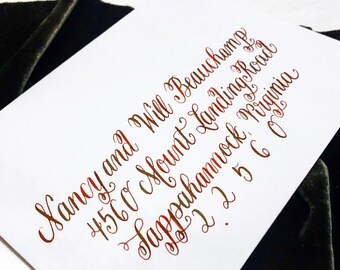 Nancy and Will Beauchamp
4560 Mount Landing Road
Tappahannock, Virginia
22560